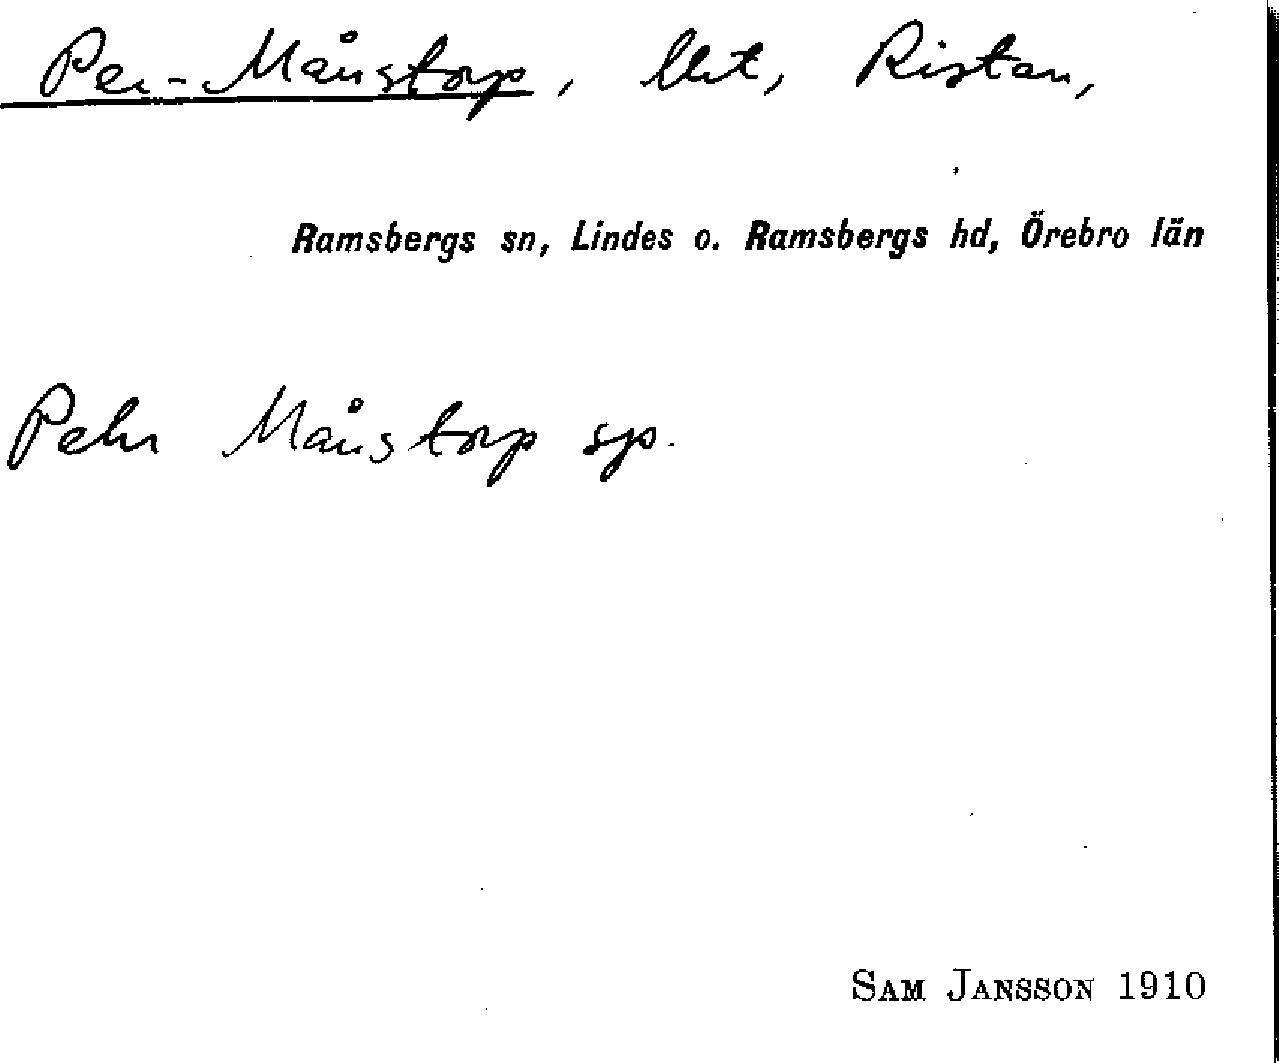 Per-Månstorp, lht, Ristan,
Ramsbergs sn, Lindes o. Ramsbergs hd, Örebro län
Pehr Månstorp sp.
SAM JANSSON 1910